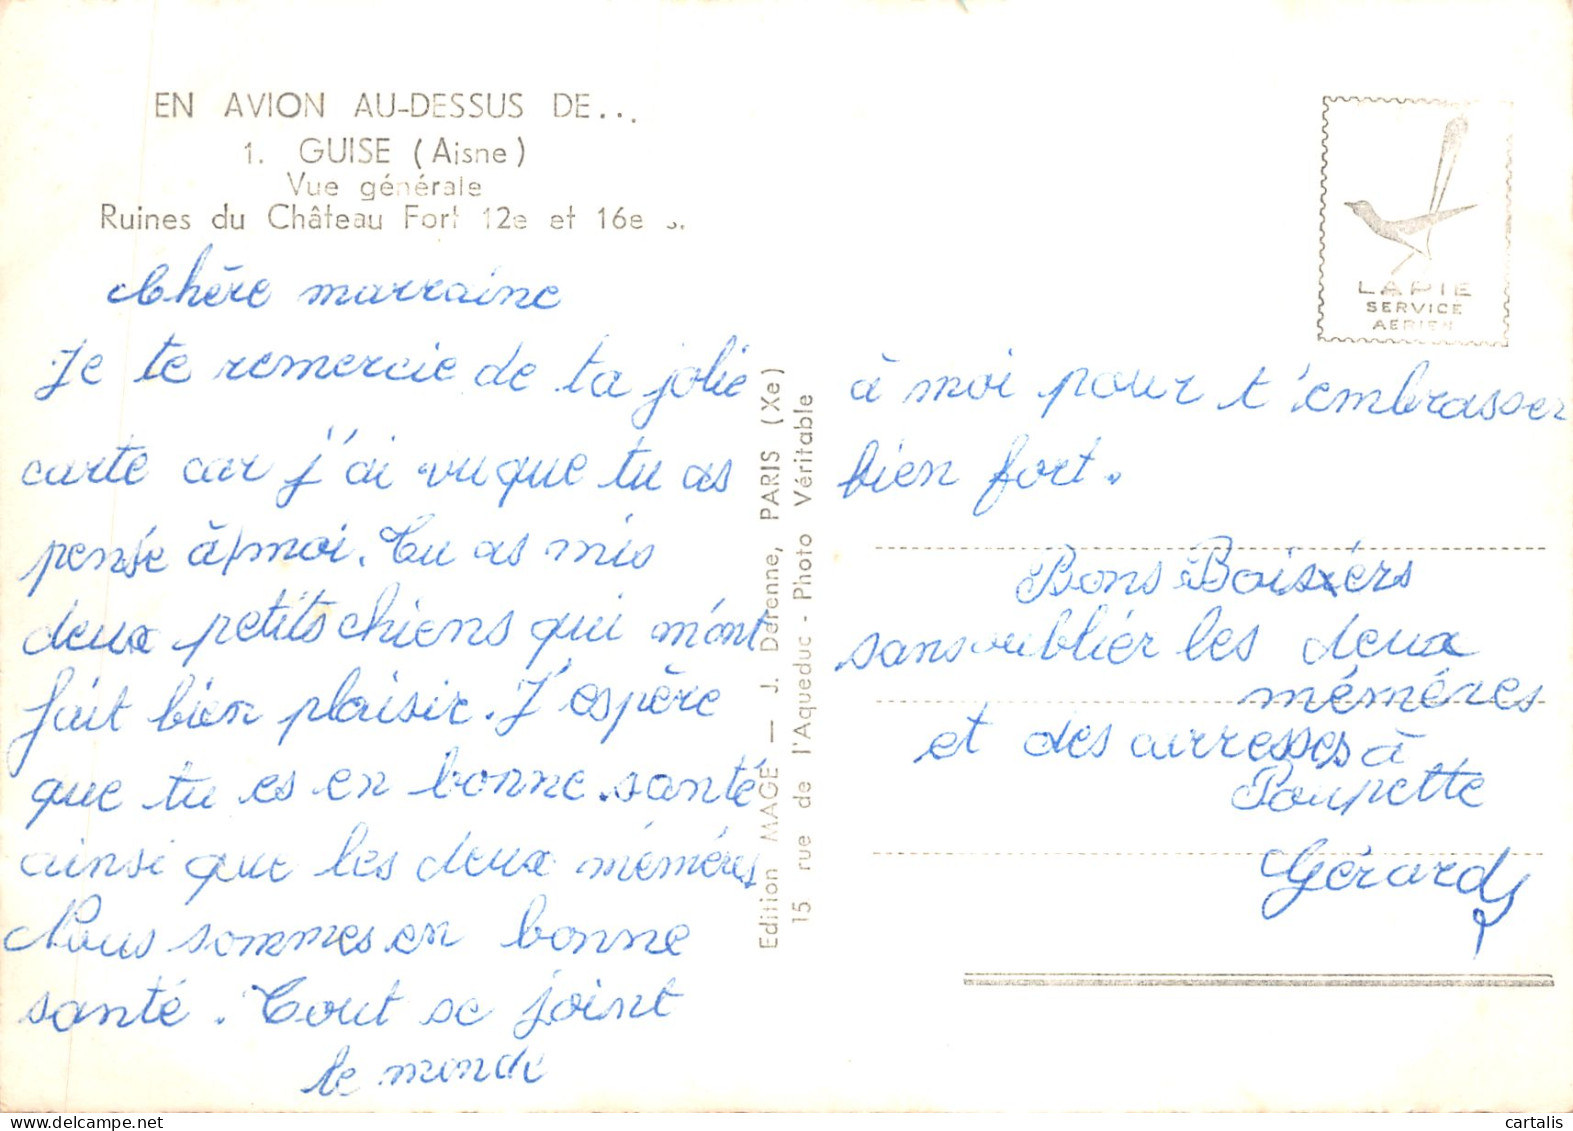 EN AVION AU-DESSUS DE...
1. GUISE (Aisne)
Vue générale
Ruines du Château Fort 12e et 16e s.
Chère marraine
Je te remercie de ta jolie
carte car j'ai vu que tu as
pensé à moi. Tu as mis
deux petits chiens qui m'ont
fait bien plaisir. J'espère
que tu es en bonne santé
ainsi que les deux mémères
Nous sommes en bonne
santé. Tout se joint
le monde
Edition MAGE — J. Derenne, PARIS (Xe)
15 rue de l'Aqueduc - Photo Véritable
LAPIE
SERVICE
AERIEN
à moi pour t'embrasser
bien fort.
Bons Boisiérs
sans oublier les deux
mémères
et des carresses à
Poupette
Gérard
cartalis.com